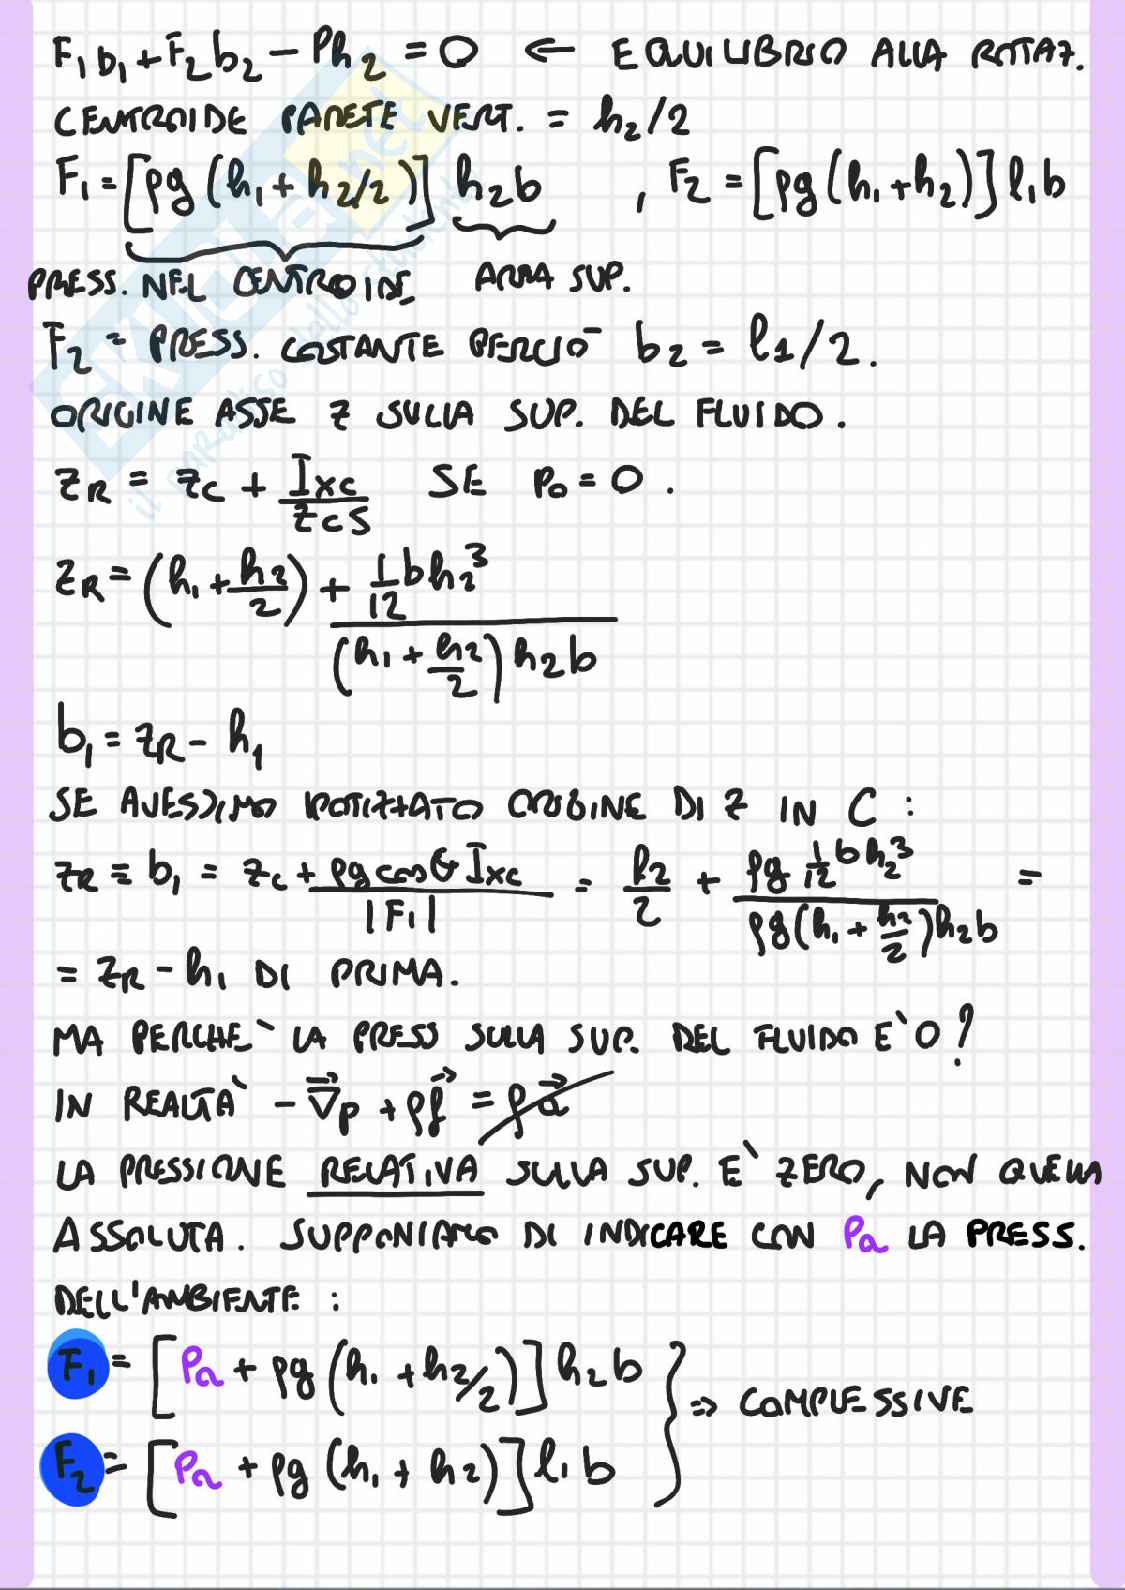 F₁b₁ + F₂b₂ - Ph₂ = 0 ← EQUILIBRIO ALLA ROTAZ.
CENTROIDE PARETE VERT. = h₂/2
F₁ = [ρg (h₁ + h₂/2)] h₂b , F₂ = [ρg (h₁ + h₂)] l₁b
PRESS. NEL CENTROIDE AREA SUP.
F₂ = PRESS. COSTANTE PERCIÒ b₂ = l₁/2.
ORIGINE ASSE Z SULLA SUP. DEL FLUIDO.
z_R = z_C + I_xc / (z_C S) SE p₀ = 0.
z_R = (h₁ + h₂/2) + (1/12 b h₂³) / ((h₁ + h₂/2) h₂b)
b₁ = z_R - h₁
SE AVESSIMO IPOTIZZATO ORIGINE DI Z IN C :
z_R = b₁ = z_C + (ρg cosθ I_xc) / |F₁| = h₂/2 + (ρg 1/12 b h₂³) / (ρg (h₁ + h₂/2) h₂b) =
= z_R - h₁ DI PRIMA.
MA PERCHÈ LA PRESS SULLA SUP. DEL FLUIDO È 0?
IN REALTÀ -∇⃗p + ρf⃗ = ρa⃗
LA PRESSIONE RELATIVA SULLA SUP. È ZERO, NON QUELLA
ASSOLUTA. SUPPONIAMO DI INDICARE CON Pa LA PRESS.
DELL'AMBIENTE :
F₁ = [Pa + ρg (h₁ + h₂/2)] h₂b
F₂ = [Pa + ρg (h₁ + h₂)] l₁b } ⇒ COMPLESSIVE